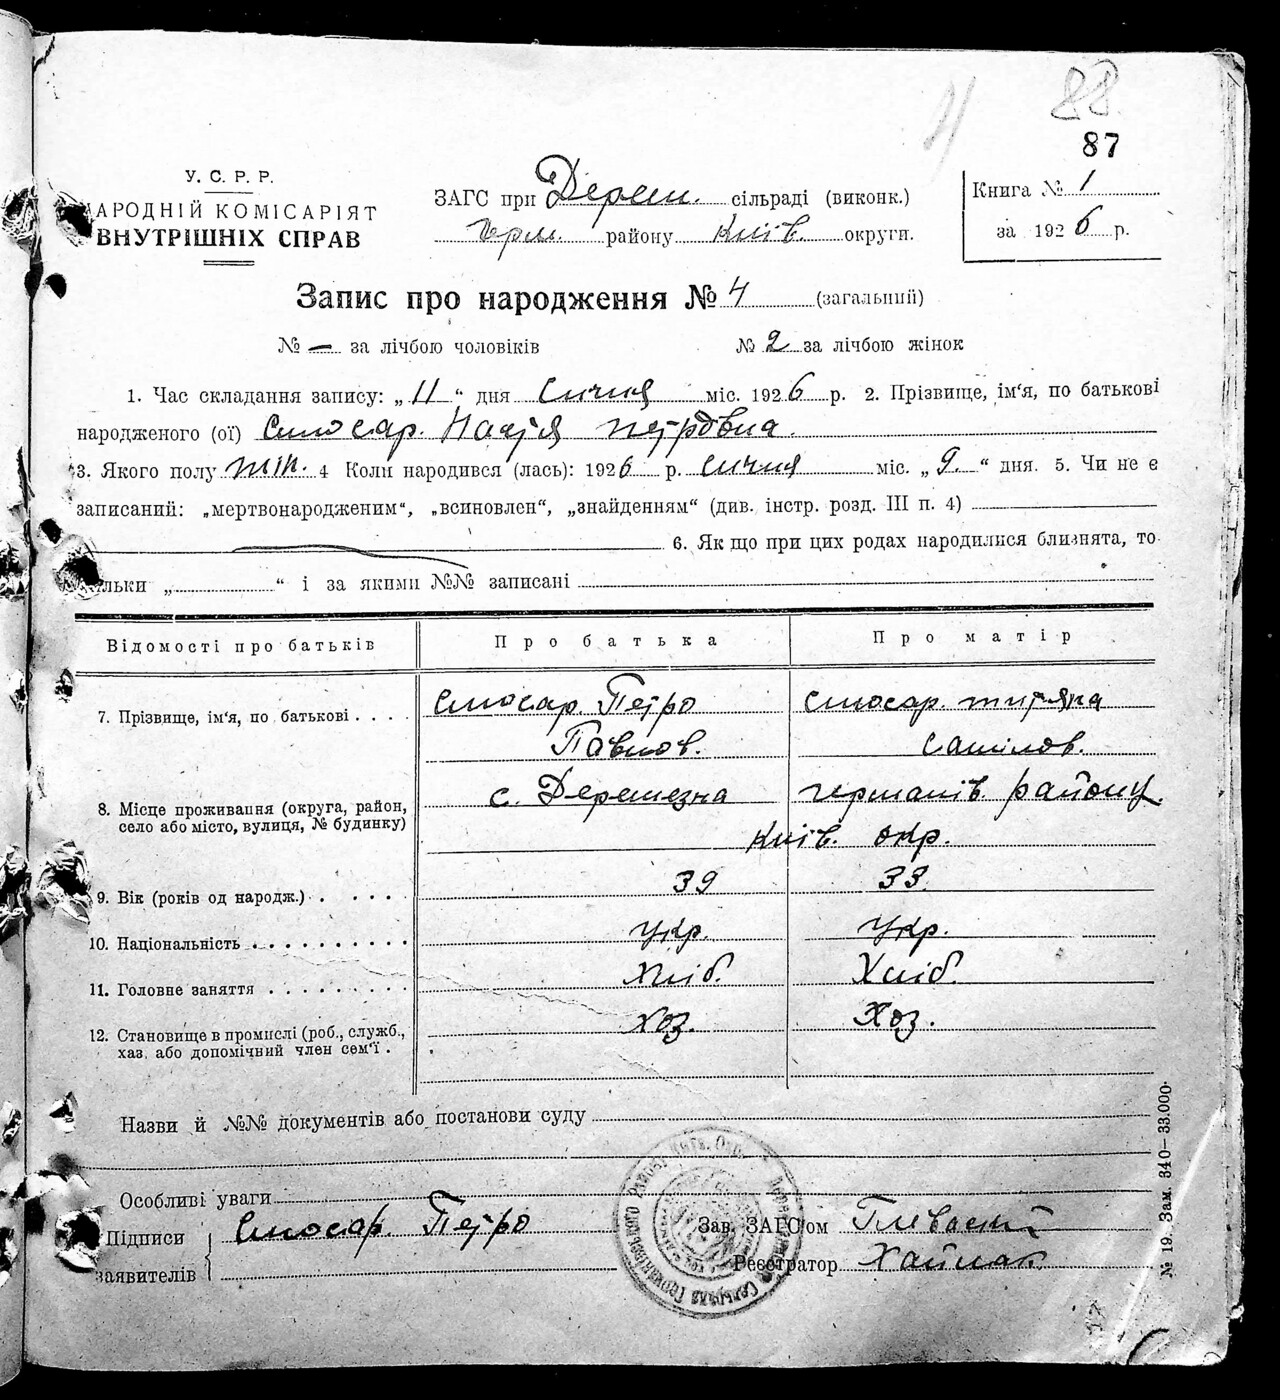 88
4
87
У. С. Р. Р.
АРОДНІЙ КОМІСАРІЯТ
ВНУТРІШНІХ СПРАВ
ЗАГС при Дерем. сільраді (виконк.)
Герм. району Київ. округи.
Книга № 1
за 1926 р.
Запис про народження № 4 (загальний)
№ — за лічбою чоловіків № 2 за лічбою жінок
1. Час складання запису: „ 11 “ дня Січня міс. 1926 р. 2. Прізвище, ім‘я, по батькові
народженого (ої) Слюсар. Надія Петровна.
3. Якого полу жін. 4 Коли народився (лась): 1926 р. січня міс. „ 9. “ дня. 5. Чи не є
записаний: „мертвонародженим“, „всиновлен“, „знайденням“ (див. інстр. розд. III п. 4)
6. Як що при цих родах народилися близнята, то
льки „ “ і за якими №№ записані
Відомості про батьків Про батька Про матір
7. Прізвище, ім‘я, по батькові . . . . Слюсар Петро Слюсар.
Павлов.
8. Місце проживання (округа, район, с. Деремезна Германів. району.
село або місто, вулиця, № будинку) Київ. окр.
9. Вік (років од народж.) . . . . . 39 33.
10. Національність . . . . . . . . . . Укр. Укр.
11. Головне заняття . . . . . . . . . Хліб. Хліб.
12. Становище в промислі (роб., служб., Хоз. Хоз.
хаз. або допомічний член сем‘ї .
Назви й №№ документів або постанови суду
Особливі уваги
Підписи Слюсар. Петро
заявителів
Зав. ЗАГС‘ом
Реєстратор
№ 19. Зам. 340—33.000.